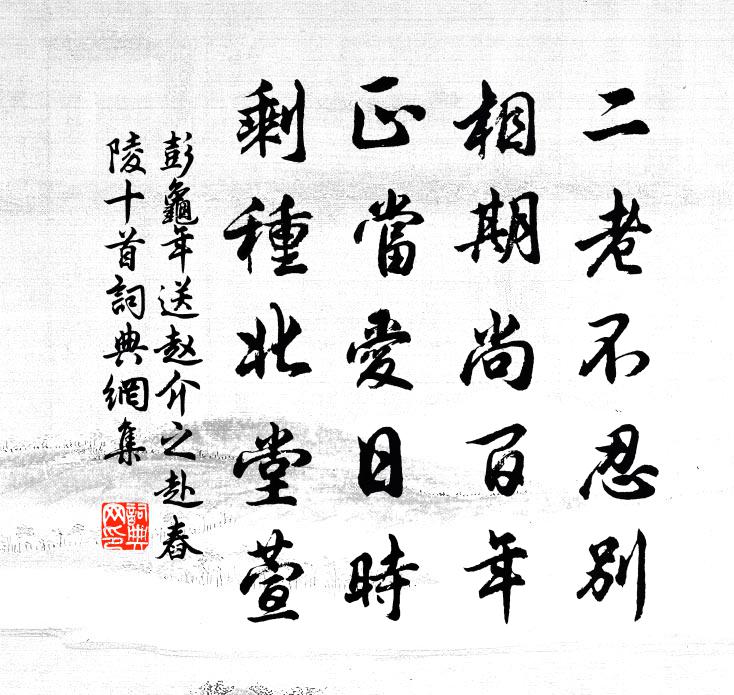 二老不忍別
相期尚百年
正當愛日時
剩種北堂萱
彭龜年送赵介之赴舂
陵十首詞典網集
詞典
网印